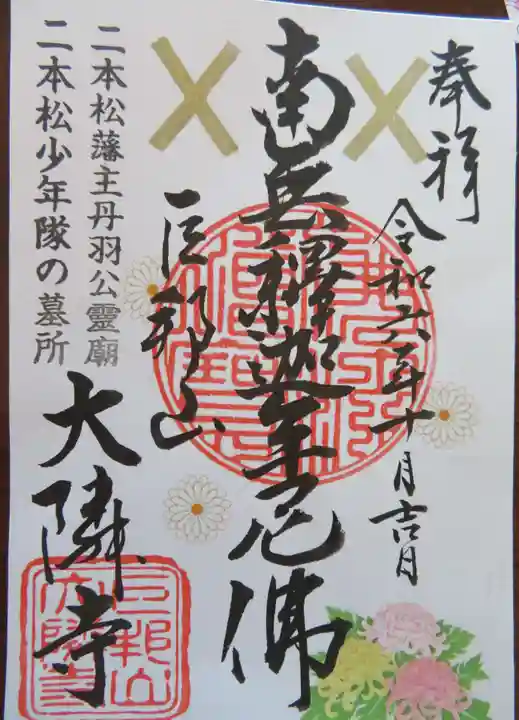 奉拝
令和六年十月吉日
南無釋迦牟尼佛
巨邦山
大隣寺
二本松藩主丹羽公靈廟
二本松少年隊の墓所